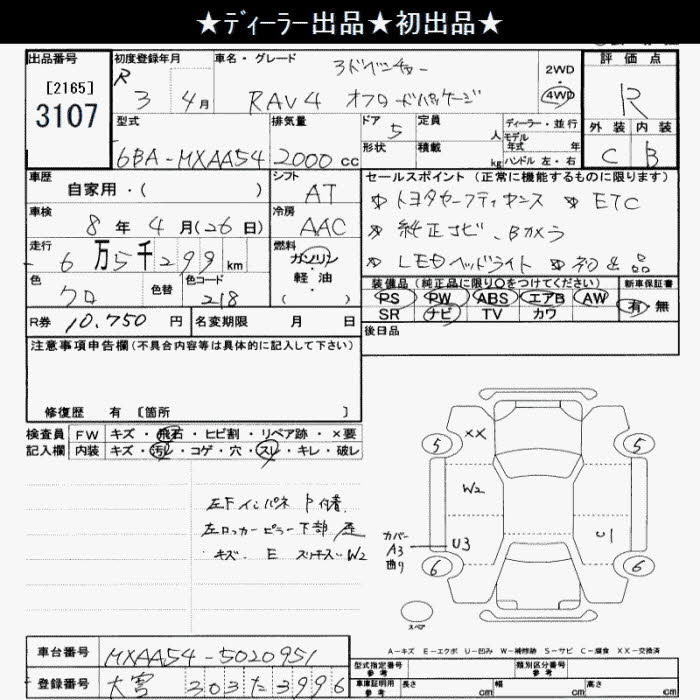 ★ディーラー出品★初出品★
出品番号
[2165]
3107
初度登録年月
R 3 4月
車名・グレード
3ドベンチャー
RAV4 オフロードパッケージ
2WD
・
4WD
評価点
R
外装 内装
C B
型式
6BA-MXAA54
排気量
2000cc
ドア
5
定員
人
形状
積載
kg
ディーラー・並行
モデル年式 年
ハンドル 左・右
車歴
自家用・( )
シフト
AT
車検
8年4月(26日)
冷房
AAC
走行
6万5千299km
燃料
ガソリン
・
軽油
( )
色
クロ
色替
色コード
218
R券 10.750円
名変期限 月 日
セールスポイント (正常に機能するものに限ります)
☆トヨタセーフティセンス ☆ETC
☆純正ナビ、Bカメラ
☆LEDヘッドライト ☆初出品
装備品 (純正品に限り○をつけてください)
PS PW ABS エアB AW
SR ナビ TV カワ
新車保証書
有・無
後日品
注意事項申告欄 (不具合内容等は具体的に記入して下さい)
修復歴 有 〔箇所 〕
検査員
記入欄
FW キズ・飛石・ヒビ割・リペア跡・×要
内装 キズ・汚レ・コゲ・穴・スレ・キレ・破レ
左Fインパネ P付着
左ロッカーピラー下部 歪
キズ E スリキズ W2
5 XX 5
W2
カバー
A3
曲り
U3
U1
6 6
スペア
A-キズ E-エクボ U-凹み W-補修跡 S-サビ C-腐食 XX-交換済
車台番号 MXAA54-5020951
登録番号 大宮 303 た 3996
型式指定番号
参考
類別区分番号
参考
車庫証明用
参考
長さ cm 幅 cm 高さ cm